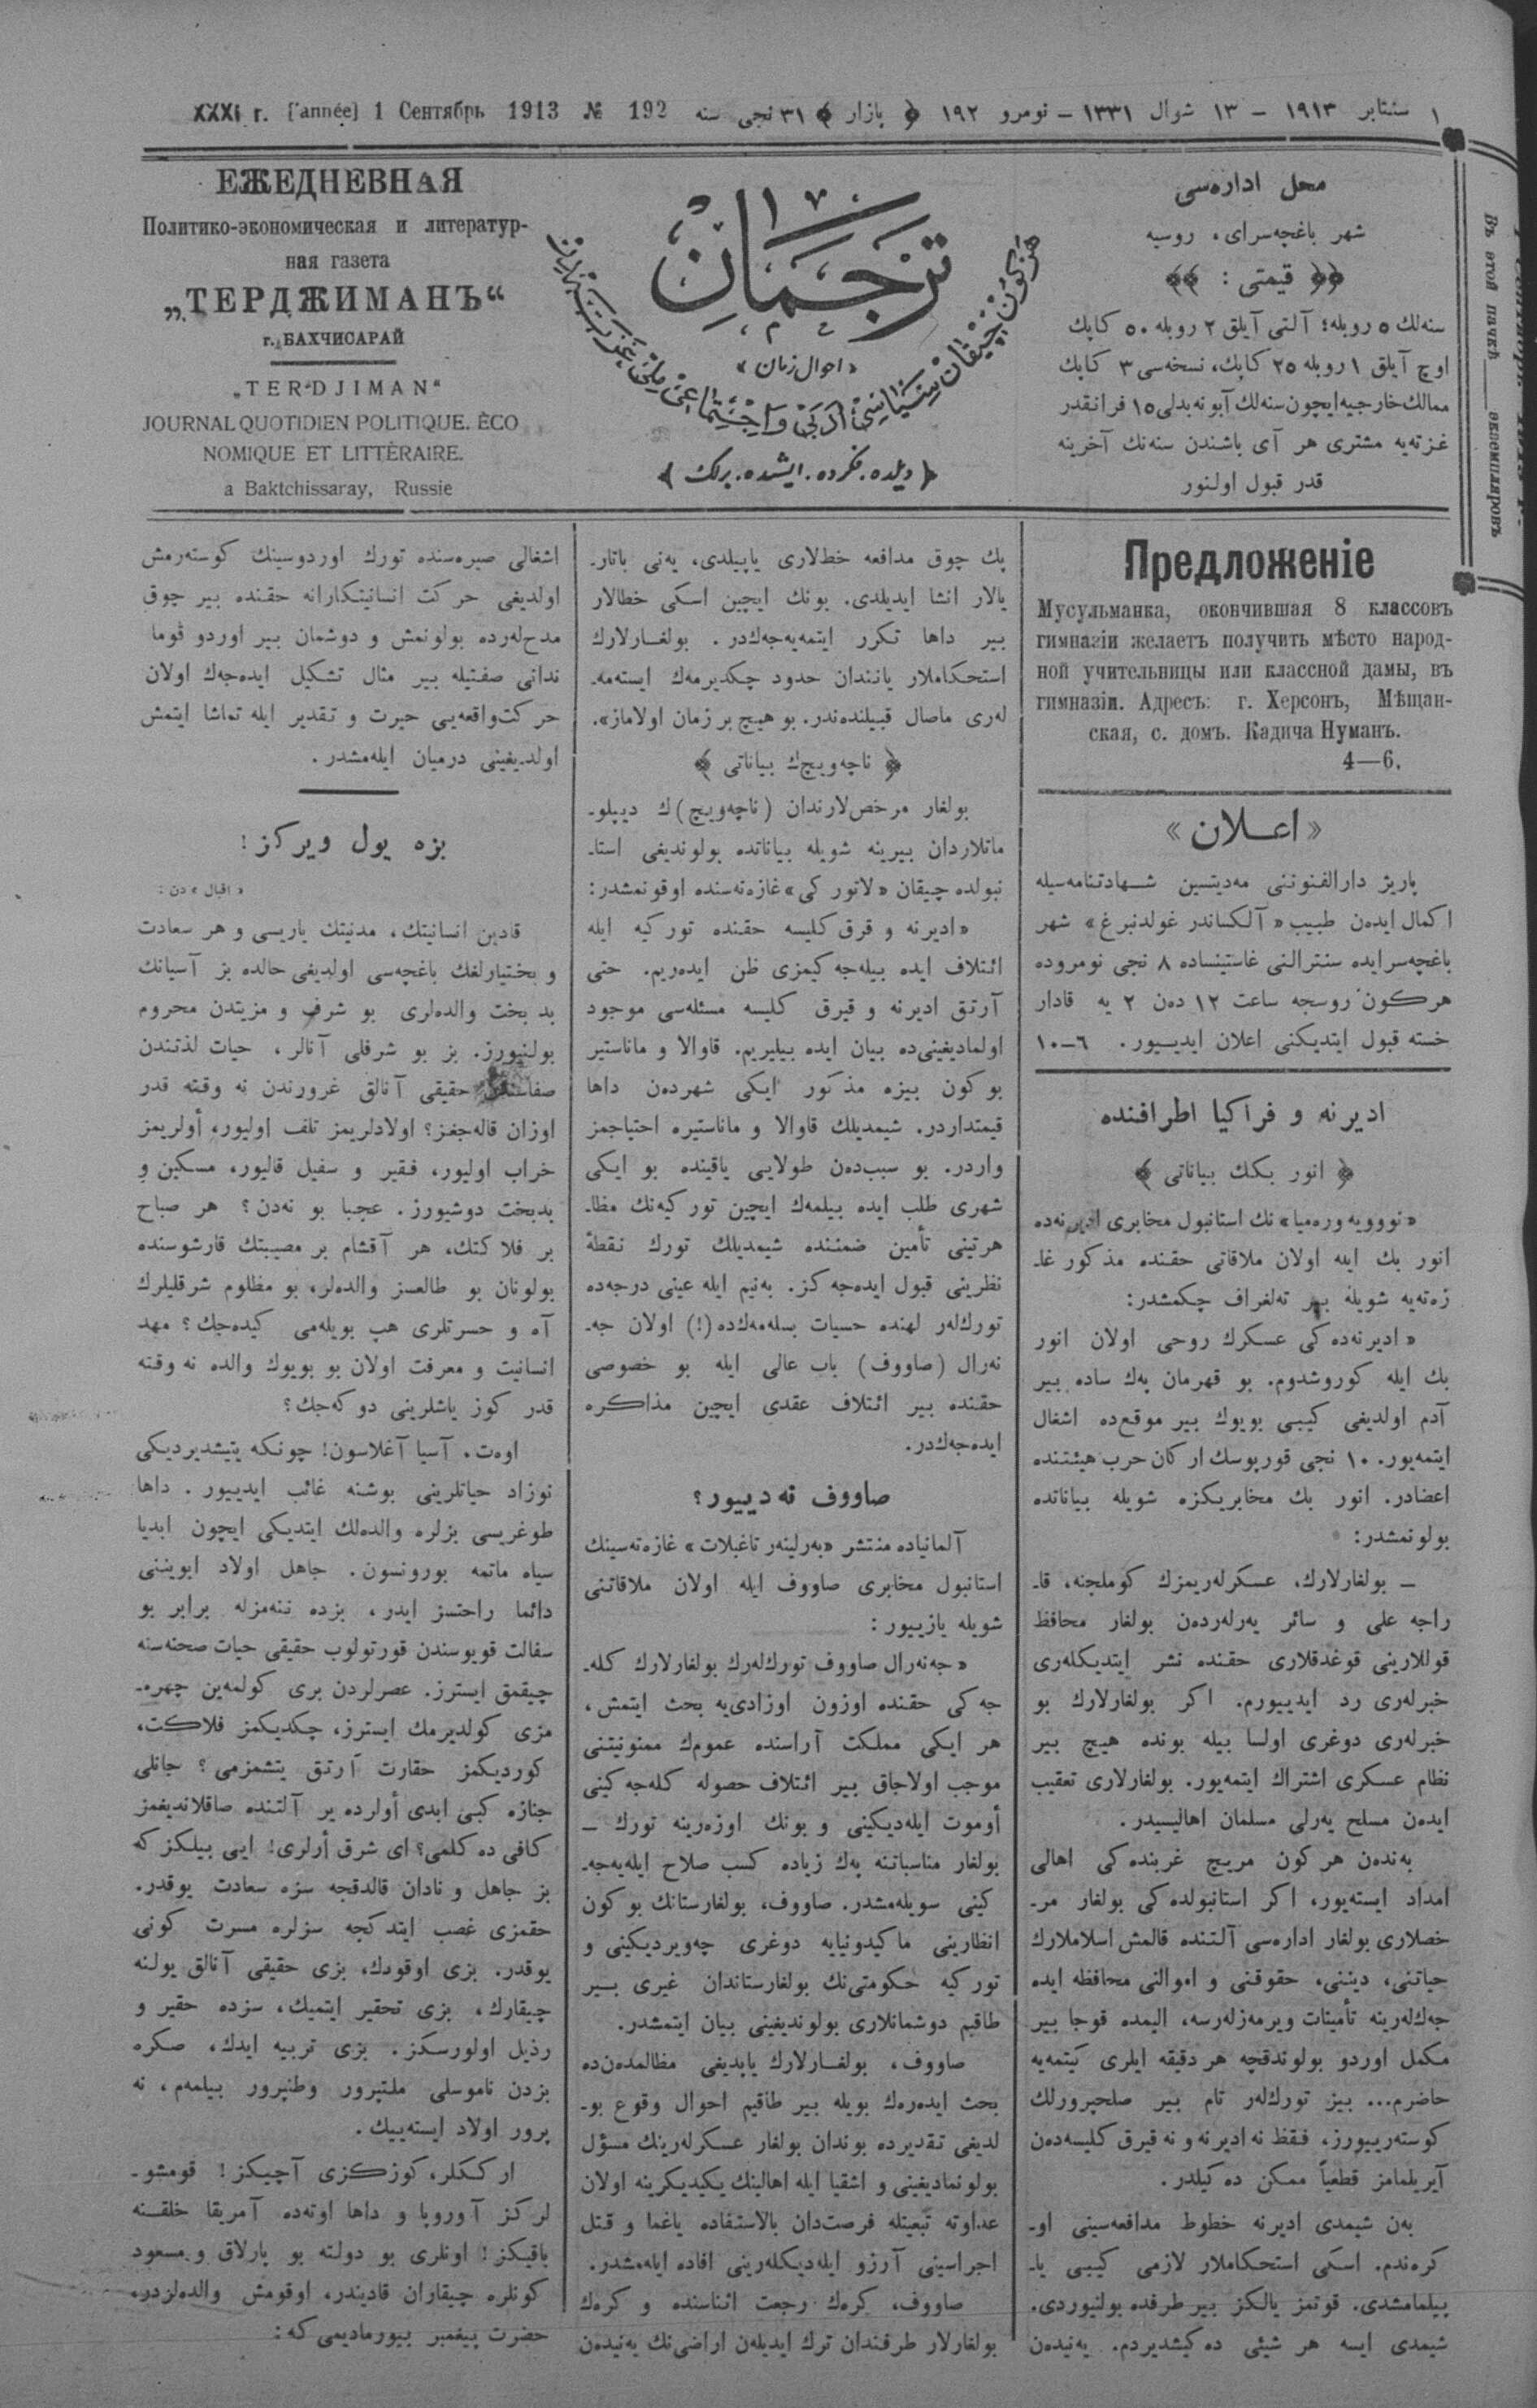 ١ سنتابر ١٩١٣ – ١٣ شوال ١٣٣١ – نومرو ١٩٢ ﴿ بازار ﴾ ٣١ نجی سنه
XXXI г. [année] 1 Сентябрь 1913 № 192
ЕЖЕДНЕВНАЯ
Политико-экономическая и литератур-
ная газета
„ТЕРДЖИМАНЪ“
г. БАХЧИСАРАЙ
„TERDJIMAN“
JOURNAL QUOTIDIEN POLITIQUE. ÈCO
NOMIQUE ET LITTÈRAIRE.
a Baktchissaray, Russie
ترجمان
« احوال زمان »
هرکون چیقان سیاسی، ادبی و اجتماعی ملی غزته در
﴿ دیلده. فکرده. ایشده. برلك ﴾
محل اداره‌سی
شهر باغچه‌سرای، روسیه
﴿﴿ قیمتی : ﴾﴾
سنه‌لك ٥ روبله؛ آلتی آیلق ٢ روبله ٥٠ کاپك
اوچ آیلق ١ روبله ٢٥ کاپك، نسخه‌سی ٣ کاپك
ممالك خارجیه ایچون سنه‌لك آبونه بدلی ١٥ فرانقدر
غزته‌یه مشتری هر آی باشندن سنه‌نك آخرینه
قدر قبول اولنور
Въ этой пачкѣ экземпляровъ
Предложеніе
Мусульманка, окончившая 8 классовъ
гимназіи желаетъ получить мѣсто народ-
ной учительницы или классной дамы, въ
гимназіи. Адресъ: г. Херсонъ, Мѣщан-
ская, с. домъ. Кадича Нуманъ.
4—6.
« اعلان »
پاریژ دارالفنوننی مه‌دیتسین شهادتنامه‌سیله
اکمال ایده‌ن طبیب « آلکساندر غولدنبرغ » شهر
باغچه‌سرایده سنترالنی غاستینساده ٨ نجی نومروده
هرکون روسجه ساعت ١٢ ده‌ن ٢ یه قادار
خسته قبول ایتدیکنی اعلان ایدییور. ٦–١٠
ادیرنه و فراکیا اطرافنده
﴿ انور بکك بیاناتی ﴾
«نوویه وره‌میا» نك استانبول مخابری ادیرنه‌ده
انور بك ایله اولان ملاقاتی حقنده مذکور غا-
زه‌ته‌یه شویله بیر ته‌لغراف چکمشدر:
« ادیرنه‌ده کی عسکرك روحی اولان انور
بك ایله کوروشدوم. بو قهرمان په‌ك ساده بیر
آدم اولدیغی کیبی بویوك بیر موقع‌ده اشغال
ایتمه‌یور. ١٠ نجی قورپوسك ارکان حرب هیئتنده
اعضادر. انور بك مخابریکزه شویله بیاناتده
بولونمشدر:
– بولغارلارك، عسکرله‌ریمزك کوملجنه، قا-
راجه علی و سائر یه‌رله‌رده‌ن بولغار محافظ
قوللارینی قوغدقلاری حقنده نشر ایتدیکله‌ری
خبرله‌ری رد ایدییورم. اکر بولغارلارك بو
خبرله‌ری دوغری اولسا بیله بونده هیچ بیر
نظام عسکری اشتراك ایتمه‌یور. بولغارلاری تعقیب
ایده‌ن مسلح یه‌رلی مسلمان اهالیسیدر.
به‌نده‌ن هرکون مریچ غربنده کی اهالی
امداد ایسته‌یور، اکر استانبولده کی بولغار مر-
خصلاری بولغار اداره‌سی آلتنده قالمش اسلاملارك
حیاتنی، دیننی، حقوقنی و اموالنی محافظه ایده
جه‌كله‌رینه تأمینات ویرمه‌زله‌رسه، الیمده قوجا بیر
مکمل اوردو بولوندقچه هر دقیقه ایلری کیتمه‌یه
حاضرم... بیز تورك‌له‌ر تام بیر صلحپرورلك
کوسته‌رییورز، فقط نه ادیرنه و نه قیرق کلیسه‌ده‌ن
آیریلمامز قطعیاً ممکن ده‌کیلدر.
به‌ن شیمدی ادیرنه خطوط مدافعه‌سینی او-
کره‌ندم. اسکی استحکاملار لازمی کیبی یا-
پیلمامشدی. قوتمز یالکز بیر طرفده بولنیوردی.
شیمدی ایسه هر شیئی ده‌کیشدیردم. یه‌نیده‌ن
پك چوق مدافعه خط‌لاری یاپیلدی، یه‌نی باتار-
یالار انشا ایدیلدی. بونك ایچین اسکی خطالار
بیر داها تکرر ایتمه‌یه‌جه‌كدر. بولغارلارك
استحکاملار یانندان حدود چکدیرمه‌ك ایسته‌مه-
له‌ری ماصال قبیلنده‌ندر. بو هیچ بر زمان اولاماز».
﴿ ناچه‌ویچ‌ك بیاناتی ﴾
بولغار مرخص‌لارندان (ناچه‌ویچ)ك دیپلو-
ماتلاردان بیرینه شویله بیاناتده بولوندیغی استا-
نبولده چیقان «لاتورکی» غازه‌ته‌سنده اوقونمشدر:
«ادیرنه و قرق کلیسه حقنده تورکیه ایله
ائتلاف ایده بیله‌جه‌کیمزی ظن ایده‌ریم. حتی
آرتق ادیرنه و قیرق کلیسه مسئله‌سی موجود
اولمادیغینی‌ده بیان ایده بیلیریم. قاوالا و ماناستیر
بوکون بیزه مذکور ایکی شهرده‌ن داها
قیمتداردر. شیمدیلك قاوالا و ماناستیره احتیاجمز
واردر. بو سبب‌ده‌ن طولایی یاقینده بو ایکی
شهری طلب ایده بیلمه‌ك ایچین تورکیه‌نك مظا-
هرتینی تأمین ضمننده شیمدیلك تورك نقطهٔ
نظرینی قبول ایده‌جه‌کز. به‌نیم ایله عینی درجه‌ده
تورك‌له‌ر لهنده حسیات بسله‌مه‌كده(!) اولان جه-
نه‌رال (صاووف) باب عالی ایله بو خصوصی
حقنده بیر ائتلاف عقدی ایچین مذاکره
ایده‌جه‌كدر.
صاووف نه دییور؟
آلمانیاده منتشر «به‌رلینه‌ر تاغبلات» غازه‌ته‌سینك
استانبول مخابری صاووف ایله اولان ملاقاتنی
شویله یازییور:
«جه‌نه‌رال صاووف تورك‌له‌رك بولغارلارك کله-
جه‌کی حقنده اوزون اوزادی‌یه بحث ایتمش،
هر ایکی مملکت آراسنده عمومك ممنونیتنی
موجب اولاجاق بیر ائتلاف حصوله کله‌جه‌کینی
أوموت ایله‌دیکینی و بونك اوزه‌رینه تورك –
بولغار مناسباتنه په‌ك زیاده کسب صلاح ایله‌یه‌جه-
کینی سویله‌مشدر. صاووف، بولغارستانك بوکون
انظارینی ماکیدونیایه دوغری چه‌ویردیکینی و
تورکیه حکومتی‌نك بولغارستاندان غیری بیر
طاقیم دوشمانلاری بولوندیغینی بیان ایتمشدر.
صاووف، بولغارلارك یاپدیغی مظالمده‌ن‌ده
بحث ایده‌ره‌ك بویله بیر طاقیم احوال وقوع بو-
لدیغی تقدیرده بوندان بولغار عسکرله‌رینك مسؤل
بولونمادیغینی و اشقیا ایله اهالینك یکیدیکرینه اولان
عداوته تبعیتله فرصت‌دان بالاستفاده یاغما و قتل
اجراسینی آرزو ایله‌دیکله‌رینی افاده ایله‌مشدر.
صاووف، کره‌ك رجعت اثناسنده و کره‌ك
بولغارلار طرفندان ترك ایدیله‌ن اراضی‌نك یه‌نیده‌ن
اشغالی صیره‌سنده تورك اوردوسینك کوسته‌رمش
اولدیغی حرکت انسانیتکارانه حقنده بیر چوق
مدح‌له‌رده بولونمش و دوشمان بیر اوردو قوما
ندانی صفتیله بیر مثال تشکیل ایده‌جه‌ك اولان
حرکت‌واقعه‌یی حیرت و تقدیر ایله تماشا ایتمش
اولدیغینی درمیان ایله‌مشدر.
بزه یول ویرکز!
« اقبال » دن:
قادین انسانیتك، مدنیتك یاریسی و هر سعادت
و بختیارلغك باغچه‌سی اولدیغی حالده بز آسیانك
بد بخت والده‌لری بو شرف و مزیتدن محروم
بولنیورز. بز بو شرفلی آنالر، حیات لذتندن
حقیقی آنالق غرورندن نه وقته قدر
اوزان قاله‌جغز؟ اولادلریمز تلف اولیور، أولریمز
خراب اولیور، فقیر و سفیل قالیور، مسکین و
بدبخت دوشیورز. عجبا بو نه‌دن؟ هر صباح
بر فلاکتك، هر آقشام بر مصیبتك قارشوسنده
بولونان بو طالعسز والده‌لر، بو مظلوم شرقلیلرك
آه و حسرتلری هپ بویله‌می کیده‌جك؟ مهد
انسانیت و معرفت اولان بو بویوك والده نه وقته
قدر کوز یاشلرینی دوکه‌جك؟
اوه‌ت. آسیا آغلاسون! چونکه یتیشدیردیکی
نوزاد حیاتلرینی بوشنه غائب ایدییور. داها
طوغریسی بزلره والده‌لك ایتدیکی ایچون ابدیا
سیاه ماتمه بورونسون. جاهل اولاد ابویننی
دائما راحتسز ایدر، بزده ننه‌مزله برابر بو
سفالت قویوسندن قورتولوب حقیقی حیات صحنه‌سنه
چیقمق ایسترز. عصرلردن بری کولمه‌ین چهره-
مزی کولدیرمك ایسترز، چکدیکمز فلاکت،
کوردیکمز حقارت آرتق یتشمزمی؟ جانلی
جنازه کبی ابدی أولرده یر آلتنده صاقلاندیغمز
کافی ده‌کلمی؟ ای شرق أرلری! ایی بیلکز که
بز جاهل و نادان قالدقجه سزه سعادت یوقدر.
حقمزی غصب ایتدکجه سزلره مسرت کونی
یوقدر. بزی اوقودك، بزی حقیقی آنالق یولنه
چیقارك، بزی تحقیر ایتمیك، سزده حقیر و
رذیل اولورسکز. بزی تربیه ایدك، صکره
بزدن ناموسلی ملتپرور وطنپرور بیلمه‌م، نه
پرور اولاد ایسته‌ییك.
ارککلر، کوزکزی آچیکز! قومشو-
لرکز آوروپا و داها اوته‌ده آمریقا خلقنه
باقیکز! اونلری بو دولته بو پارلاق و مسعود
کونلره چیقاران قادیندر، اوقومش والده‌لردر،
حضرت پیغمبر بیورمادیمی که: